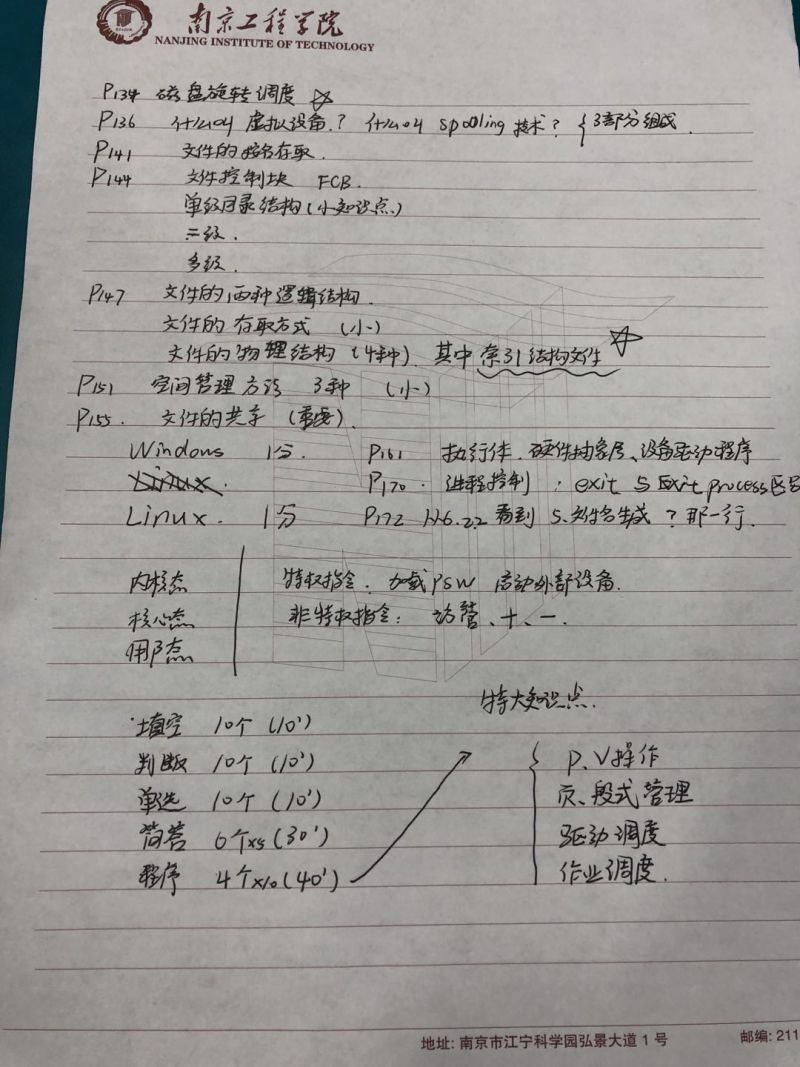 南京工程学院
NANJING INSTITUTE OF TECHNOLOGY
P134 磁盘旋转调度 ☆
P136 什么叫虚拟设备? 什么叫 spooling 技术? { 3部分组成.
P141 文件的按名存取.
P144 文件控制块 FCB.
单级目录结构(小知识点)
二级.
多级.
P147 文件的两种逻辑结构.
文件的存取方式 (小)
文件的物理结构 (4种). 其中索引结构文件 ☆
P151 空间管理方法 3种 (小)
P155. 文件的共享 (重要).
Windows 1分. P161 执行体.硬件抽象层、设备驱动程序
Linux.
P170. 进程控制: exit 与 Exit process区别
Linux. 1分 P172 看到 5.文件名生成? 那一行.
内核态 特权指令: 加载PSW 启动外部设备.
核心态 非特权指令: 访管、+、-.
用户态
特大知识点.
填空 10个 (10')
判断 10个 (10')
单选 10个 (10')
简答 6个x5 (30')
程序 4个x10 (40')
P、V操作
页、段式管理
驱动调度
作业调度.
地址: 南京市江宁科学园弘景大道1号 邮编: 211